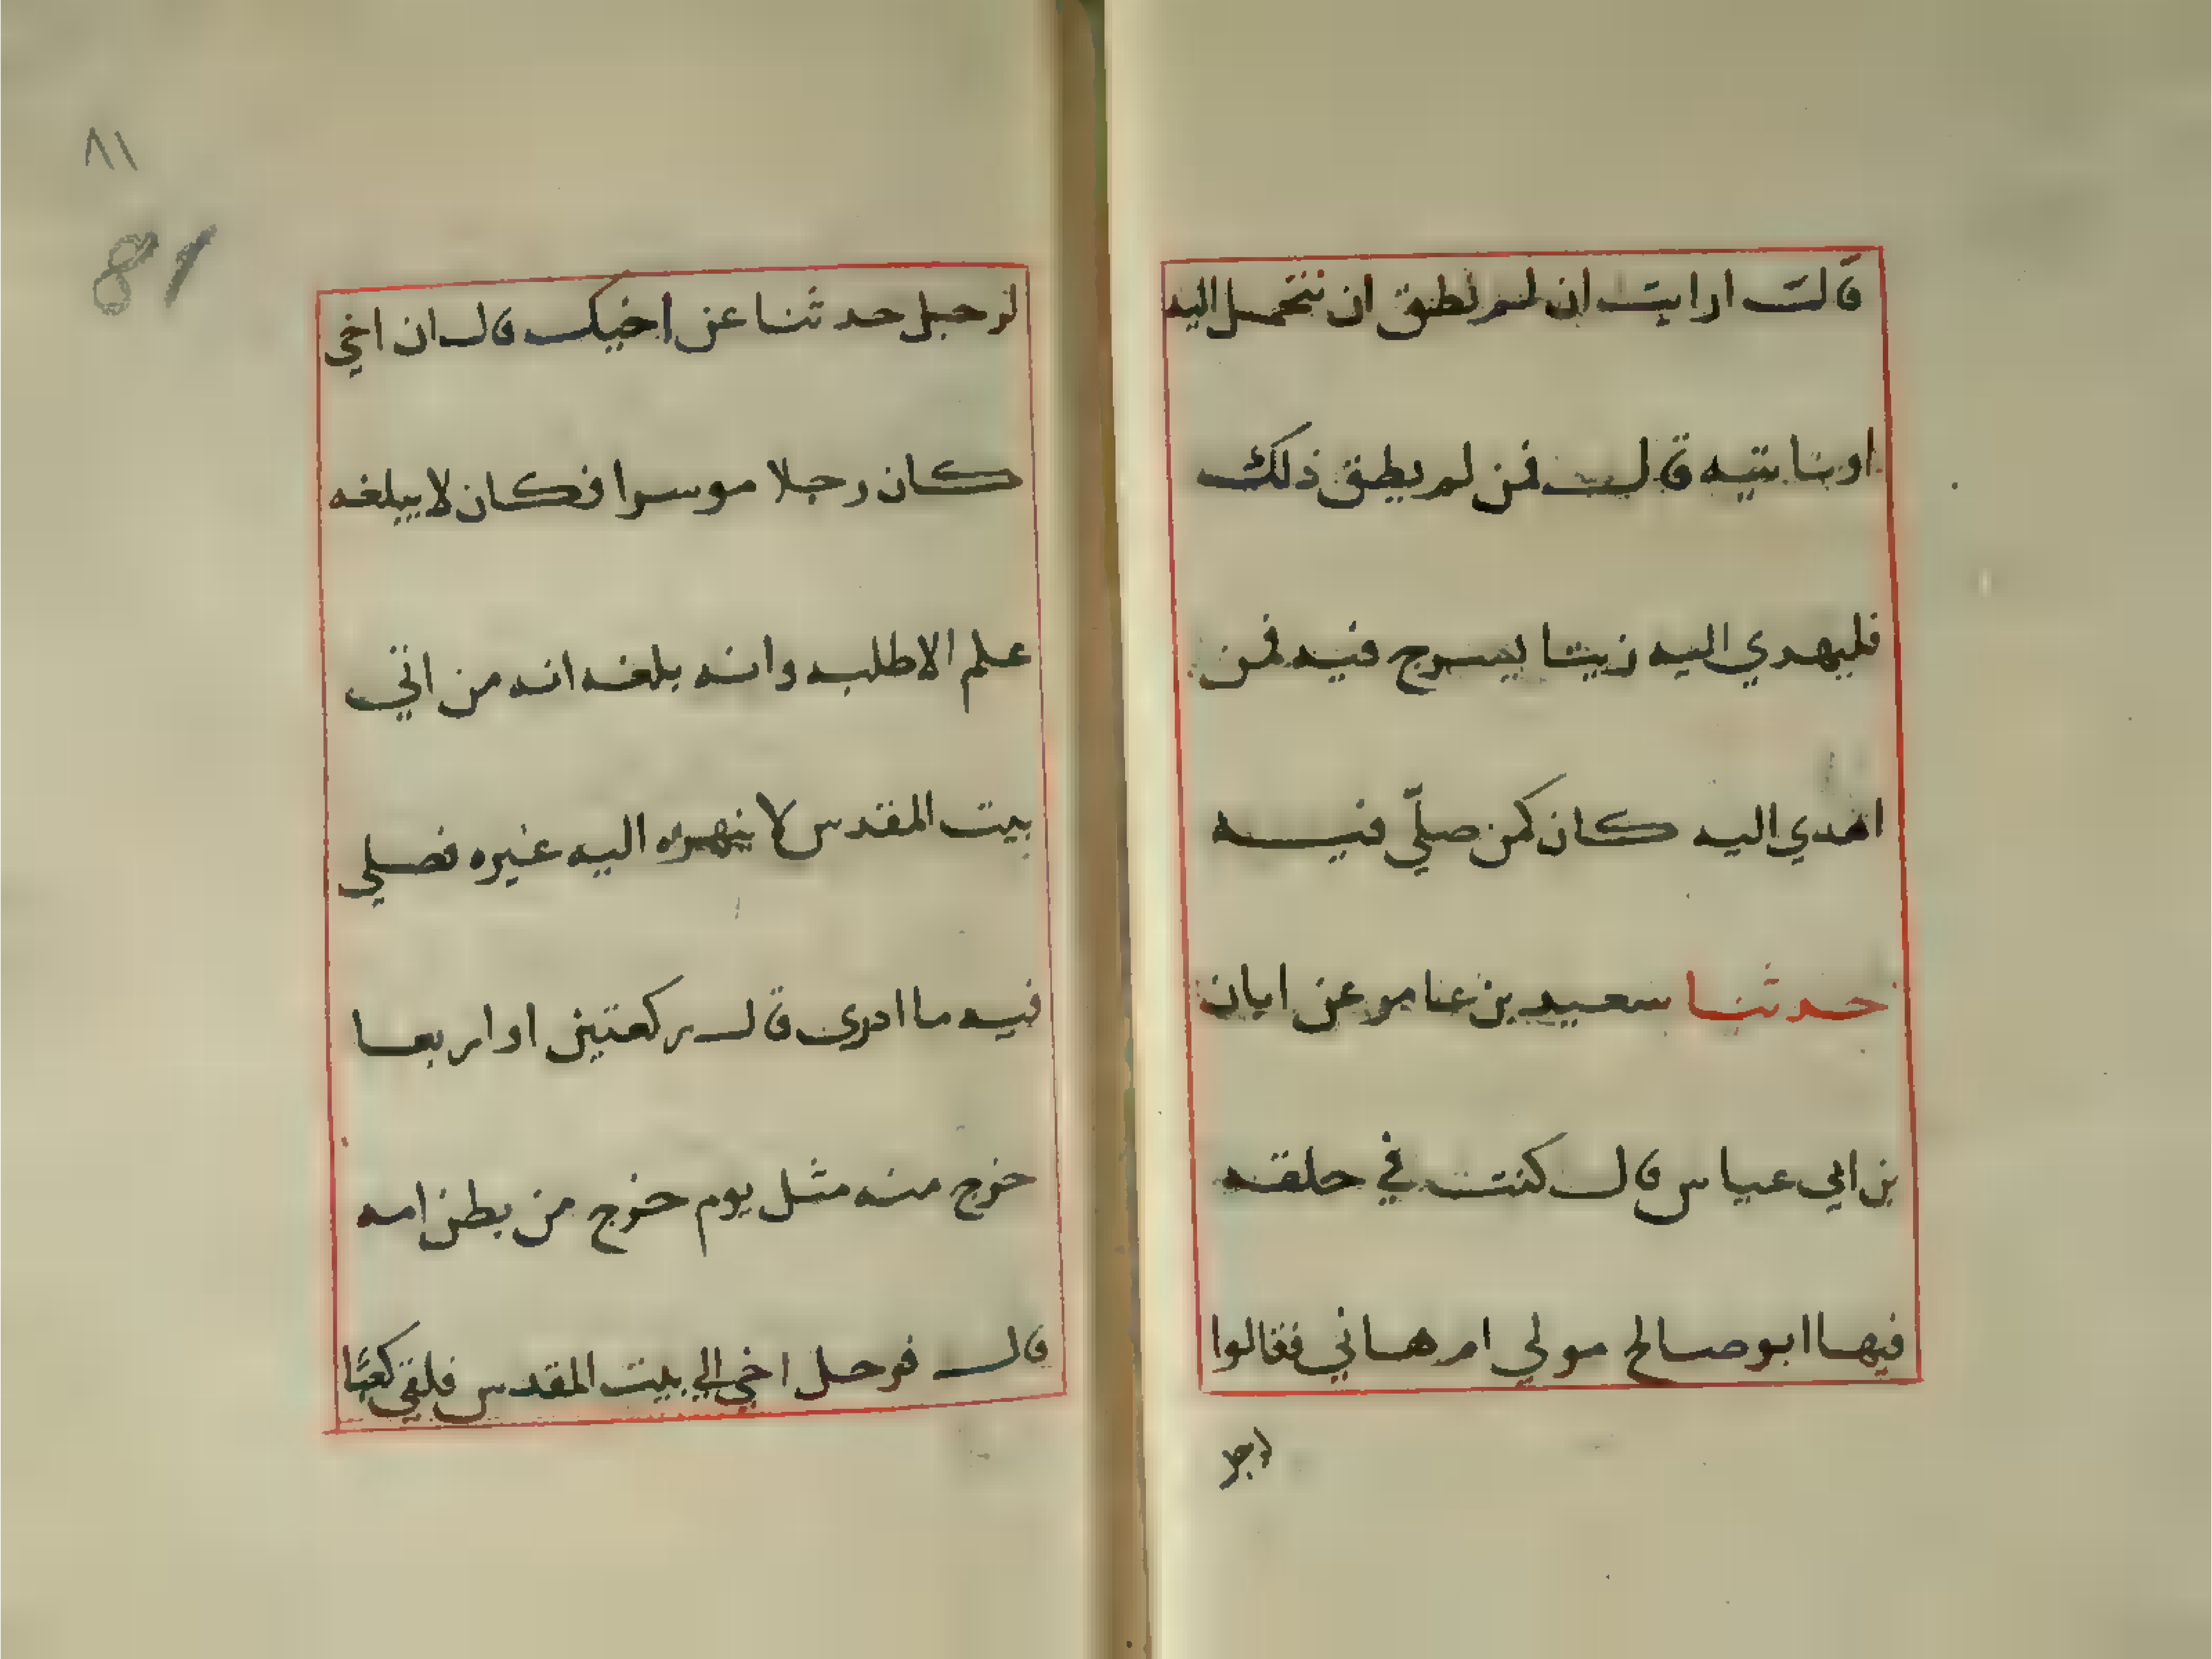 قالت ارايت ان لم نطق ان نتحمل اليه
او ناتيه قال فمن لم يطق ذلك
فليهدي اليه زيتا يسرج فيه فمن
اهدي اليه كان كمن صلّي فيه
حدثنا سعيد بن عامر عن ابان
بن ابي عياس قال كنت في حلقه
فيها ابو صالح مولي ام هاني فقالوا
لرجل حدثنا عن اخيك قال ان اخي
كان رجلا موسرا فكان لا يبلغه
علم الا طلبه وانه بلغه انه من اتي
بيت المقدس لا ينهزه اليه غيره فصلي
فيه ما ادري قال ركعتين او اربعا
خرج منه مثل يوم خرج من بطن امه
قال فرحل اخي الي بيت المقدس فلقي كعبًا
٨١
81